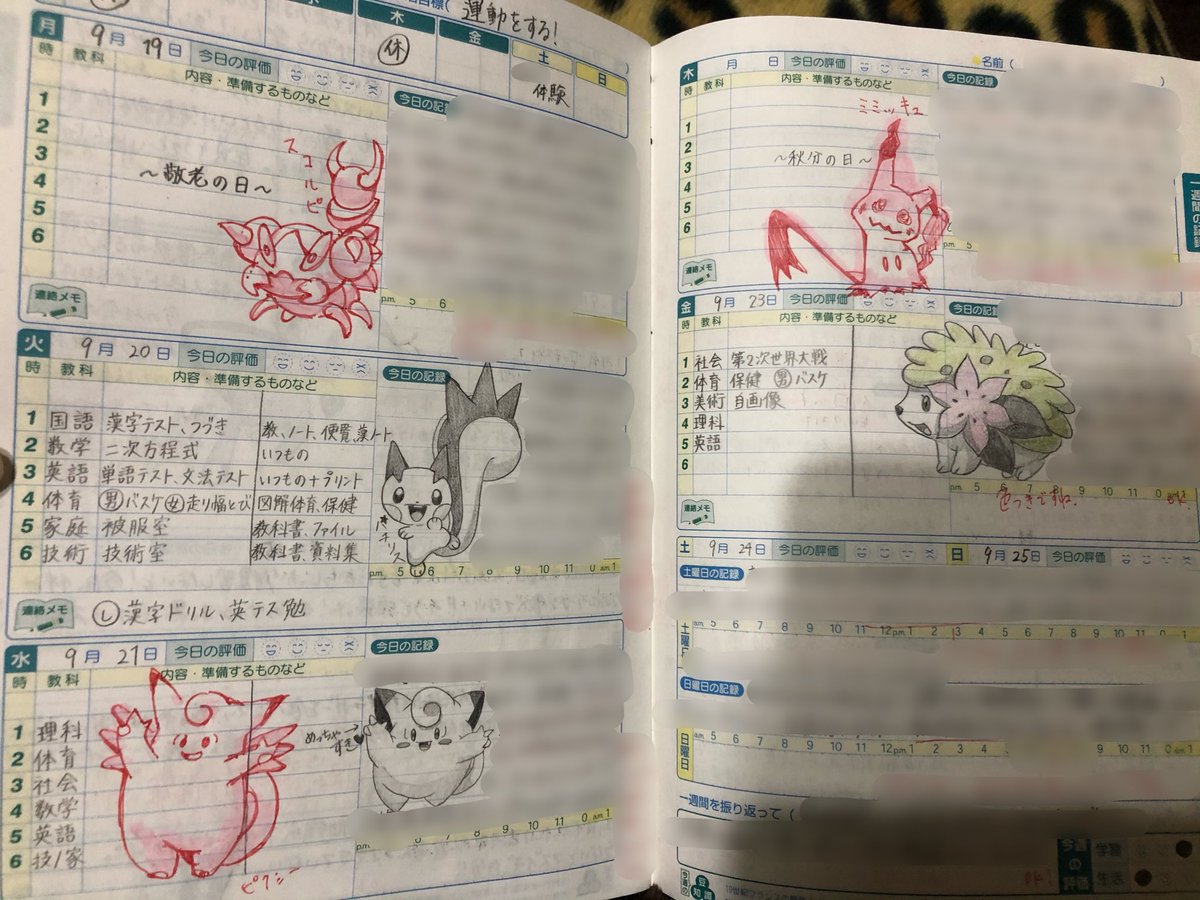 目標( 運動をする!
木
金
土
日
休
体験
月 9月19日 今日の評価
時 教科 内容・準備するものなど 今日の記録
1
2
3
4
5
6
~敬老の日~
スコルピ
連絡メモ
p.m. 5 6
火 9月20日 今日の評価
時 教科 内容・準備するものなど 今日の記録
1 国語 漢字テスト、つづき 教、ノート、便覧、薬ノート
2 数学 二次方程式 いつもの
3 英語 単語テスト、文法テスト いつもの+プリント
4 体育 男バスケ 女走り幅とび 図解体育、保健
5 家庭 被服室 教科書、ファイル
6 技術 技術室 教科書、資料集
パチリス
p.m. 5 6 7 8 9 10 11 0 a.m. 1
連絡メモ し漢字ドリル、英テス勉
水 9月21日 今日の評価
時 教科 内容・準備するものなど 今日の記録
1 理科
2 体育
3 社会
4 数学
5 英語
6 技/家
めっちゃすき
ピクシー
7 8 9 10 11 0 a.m. 1
名前 (
木 月 日 今日の評価
時 教科 内容・準備するものなど 今日の記録
1
2
3
4
5
6
ミミッキュ
~秋分の日~
p.m. 5
連絡メモ
一週間の記録
金 9月23日 今日の評価
時 教科 内容・準備するものなど 今日の記録
1 社会 第2次世界大戦
2 体育 保健 男バスケ
3 美術 自画像
4 理科
5 英語
6
p.m. 5 6 7 8 9 10 11 0
色つきですね。
連絡メモ
土 9月24日 今日の評価 日 9月25日 今日の評価
土曜日の記録
土曜日 a.m. 5 6 7 8 9 10 11 12 p.m. 1 2 3 4 5 6 7 8 9 10 11 0
日曜日の記録
日曜日 a.m. 5 6 7 8 9 10 11 12 p.m. 1 2 3 4 9 10 11 0 1
一週間を振り返って (
今週の評価 学習
生活
今週の豆知識